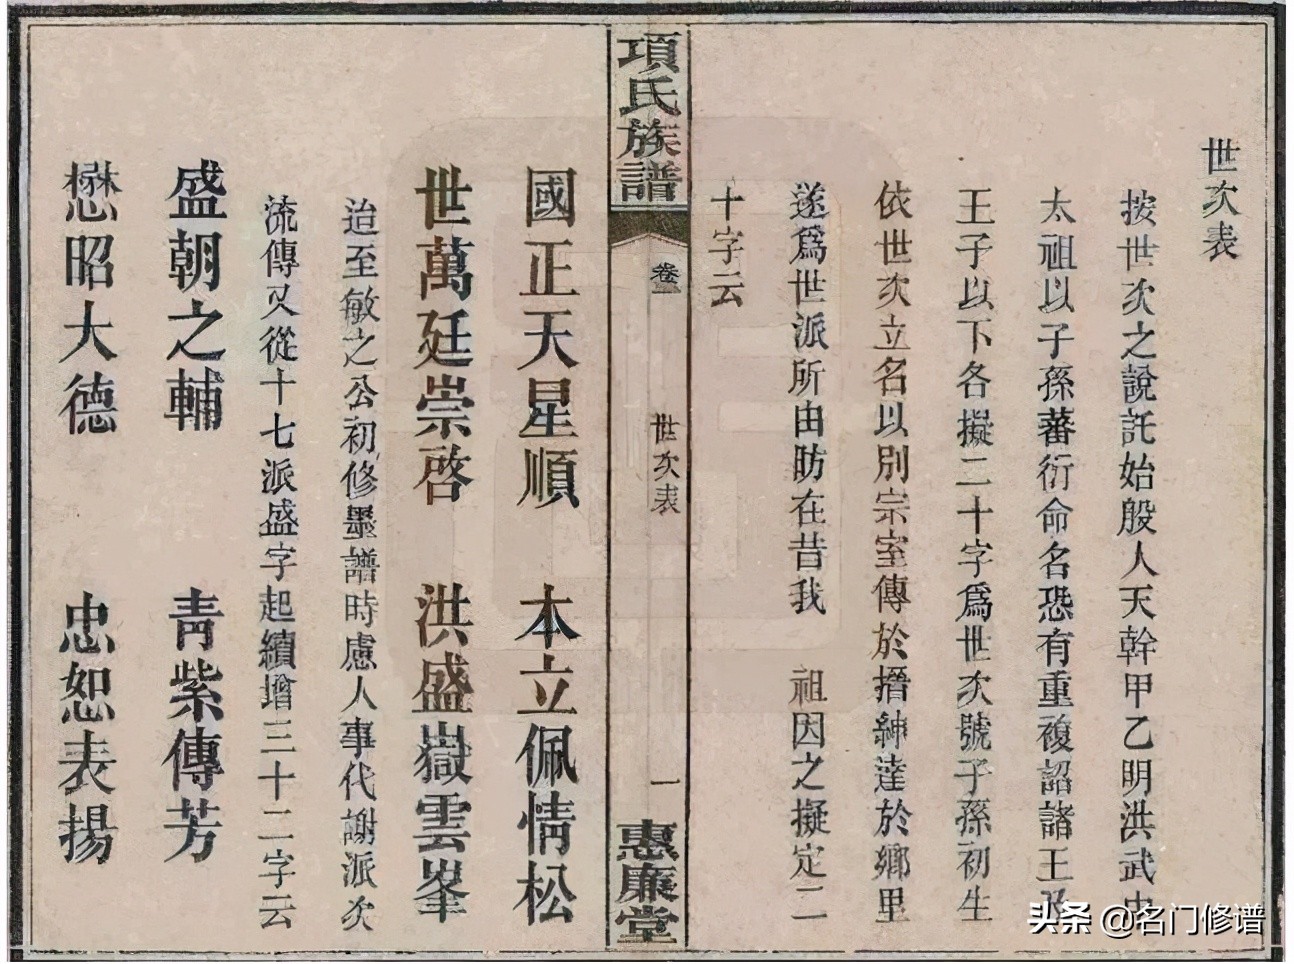 世次表
按世次之說託始殷人天幹甲乙明洪武中
太祖以子孫蕃衍命名恐有重複詔諸王及
王子以下各擬二十字爲世次號子孫初生
依世次立名以別宗室傳於搢紳逹於鄉里
遂爲世派所由昉在昔我 祖因之擬定二
十字云
項氏族譜
卷
世次表
一
惠廉堂
國正天星順 本立佩情松
世萬廷崇啓 洪盛嶽雲峯
迨至敏之公初修墨譜時慮人事代謝派次
流傳又從十七派盛字起續增三十二字云
盛朝之輔 青紫傳芳
懋昭大德 忠恕表揚
头条 @名门修谱